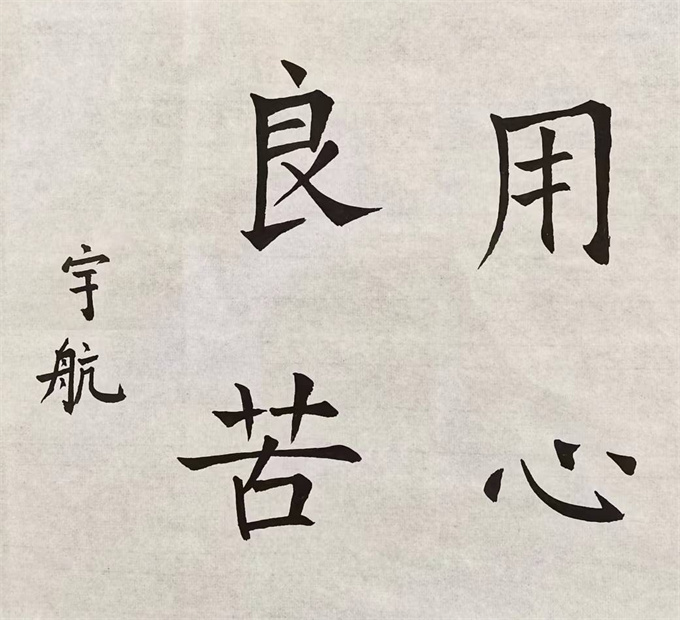 用心
良苦
宇航